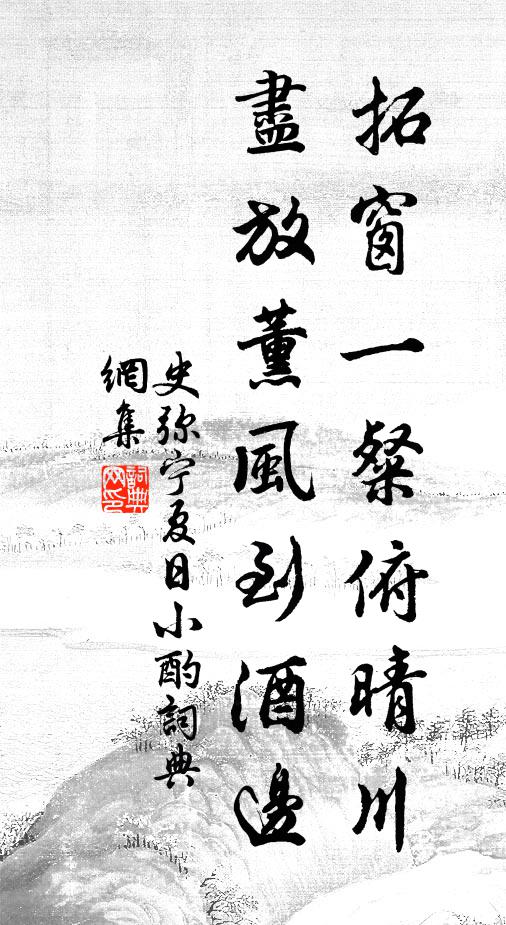 拓窗一粲俯晴川
盡放薰風到酒邊
史弥宁夏日小酌詞典
網集
詞典
网印